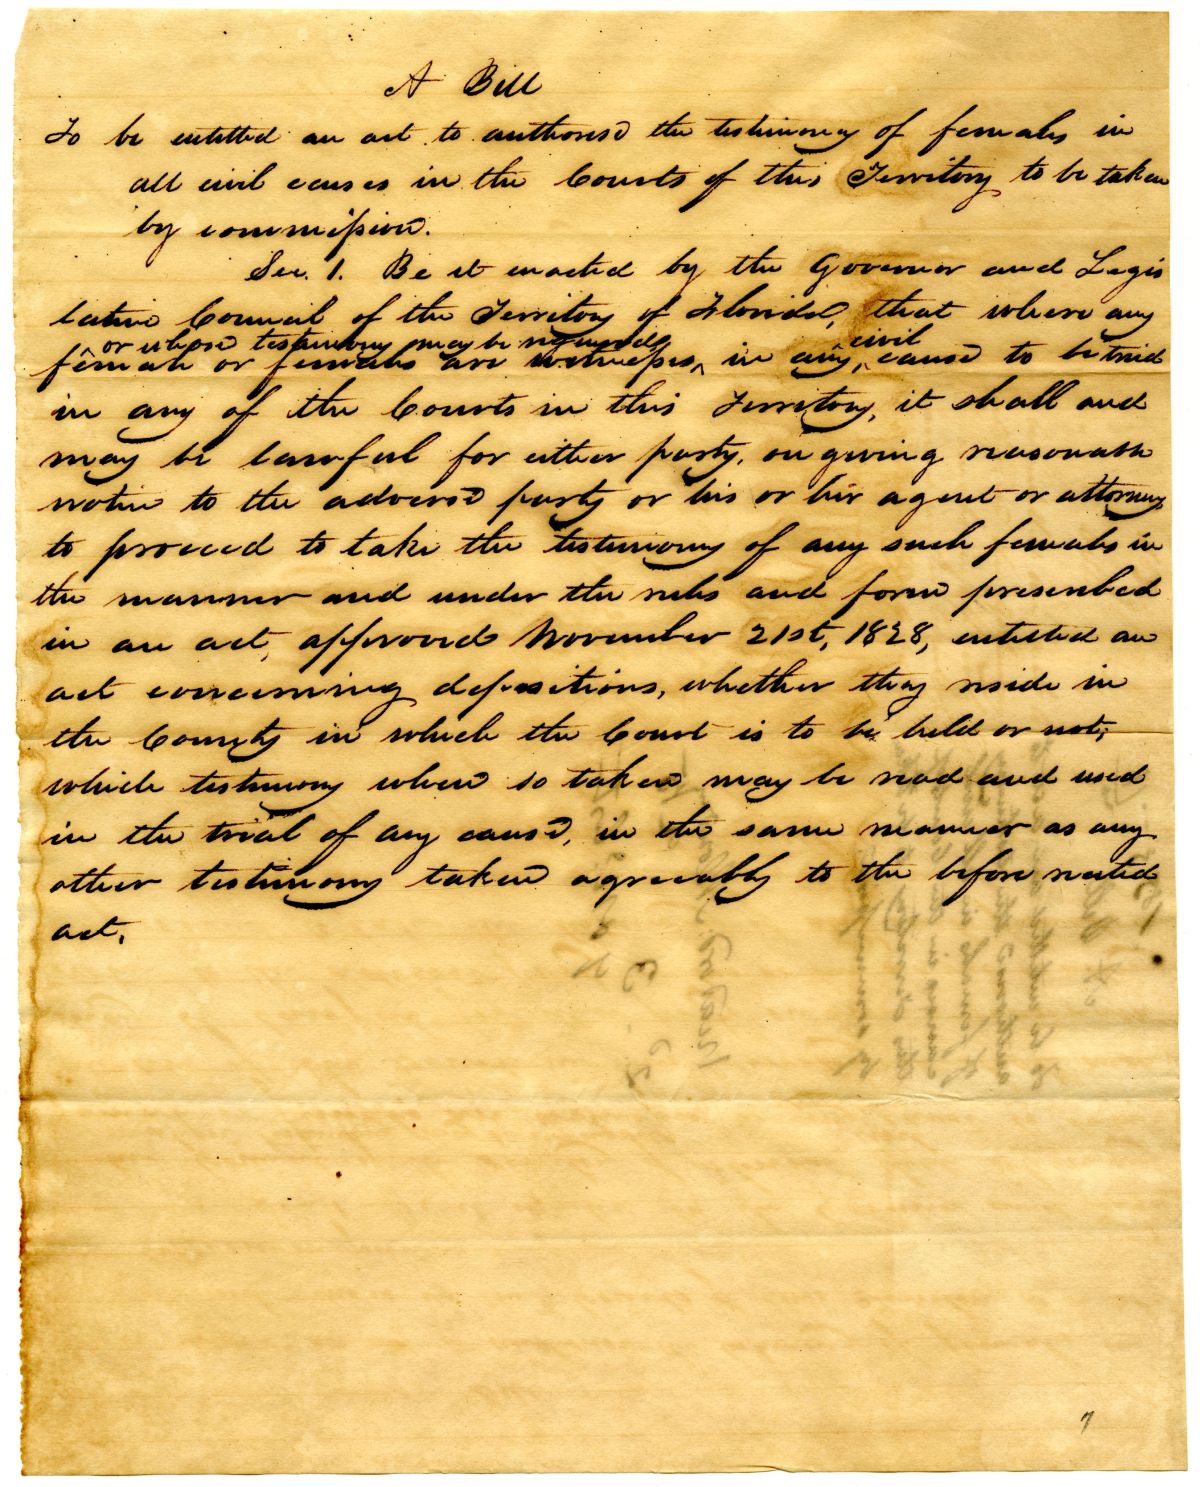 A Bill
To be entitled an act to authorise the testimony of females in
all civil causes in the Courts of this Territory to be taken
by commission.
Sec. 1. Be it enacted by the Governor and Legis
lative Council of the Territory of Florida, that where any
or whose testimony may be required civil
female or females are witnesses, in any cause to be tried
in any of the Courts in this Territory, it shall and
may be lawful for either party, on giving reasonable
notice to the adverse party or his or her agent or attorney
to proceed to take the testimony of any such females in
the manner and under the rules and form prescribed
in an act, approved November 21st, 1828, entitled an
act concerning depositions, whether they reside in
the County in which the Court is to be held or not;
which testimony when so taken may be read and used
in the trial of any cause, in the same manner as any
other testimony taken agreeably to the before recited
act.
7